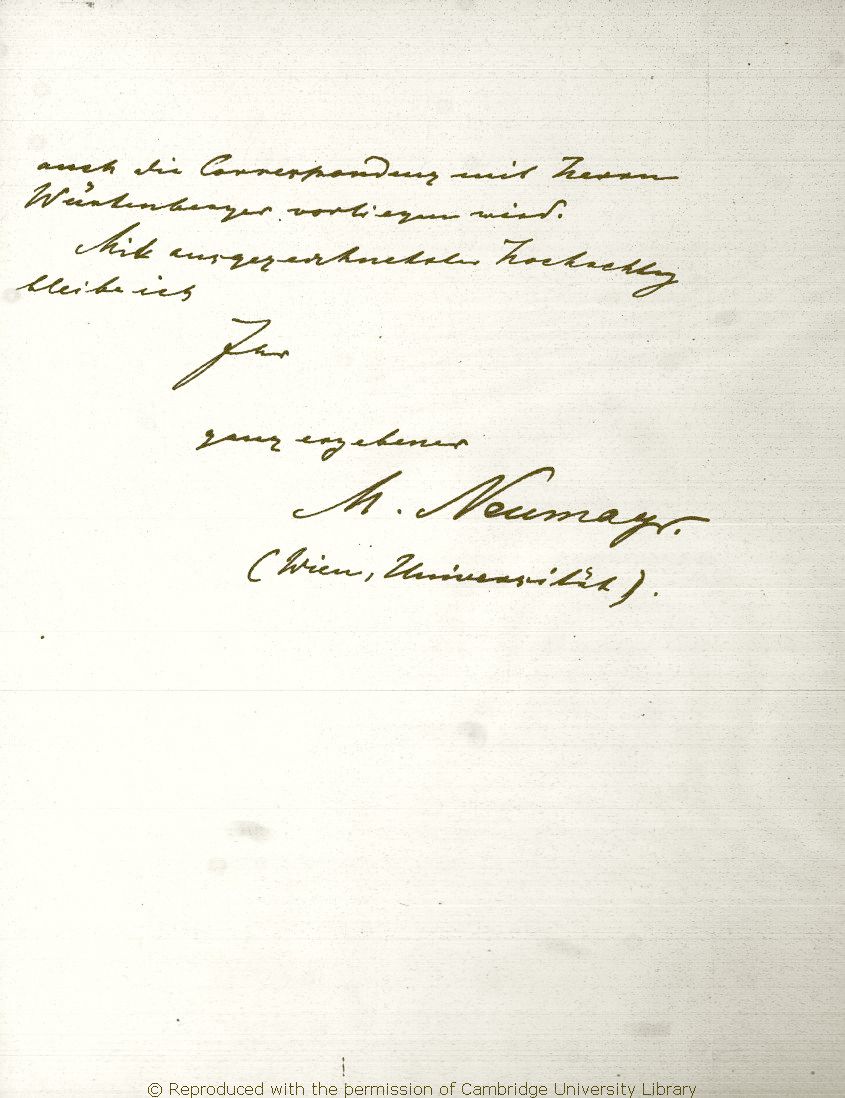 auch die Correspondenz mit Herrn
Würtenberger vorliegen wird.
Mit ausgezeichneter Hochachtg
bleibe ich
Ihr
ganz ergebener
M. Neumayr.
(Wien, Universität).
© Reproduced with the permission of Cambridge University Library